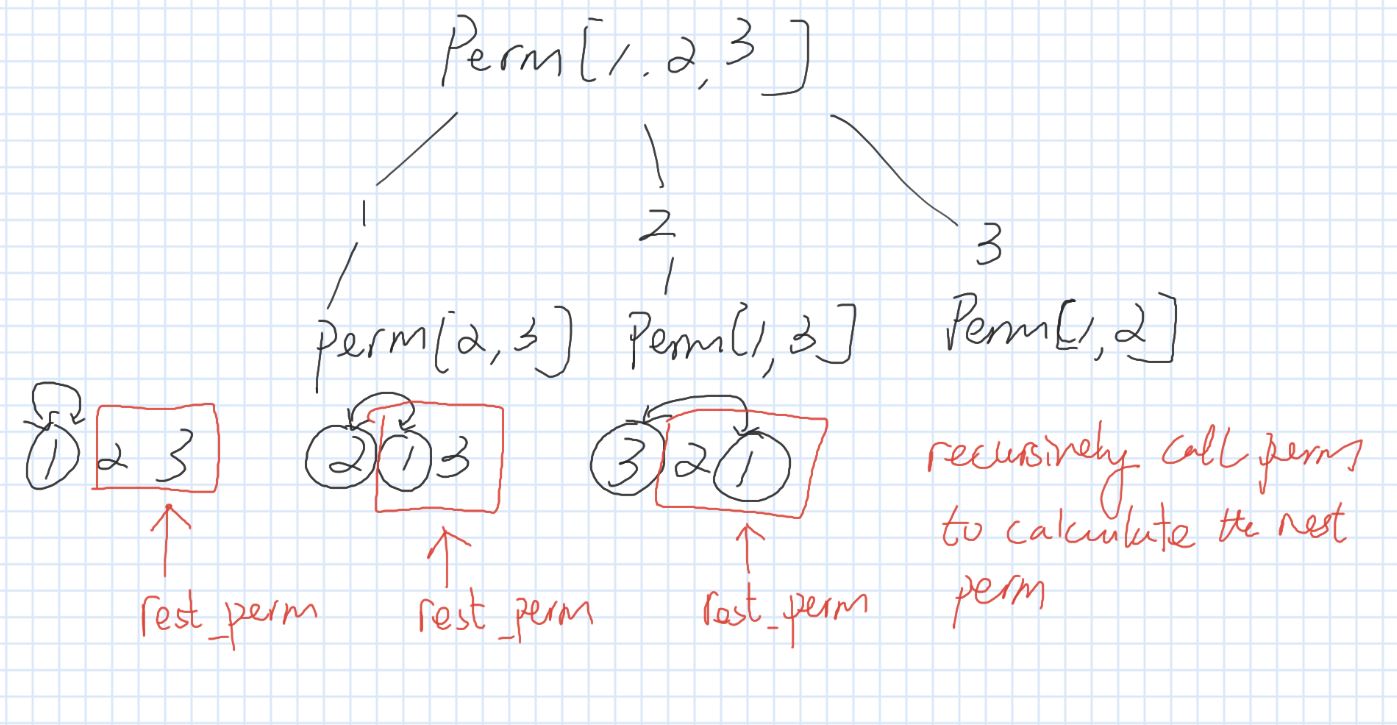 Perm[1,2,3]
1 2 3
perm[2,3] Perm[1,3] Perm[1,2]
1 2 3 2 1 3 3 2 1
rest_perm rest_perm rest_perm
recursively call perm
to calculate the rest
perm